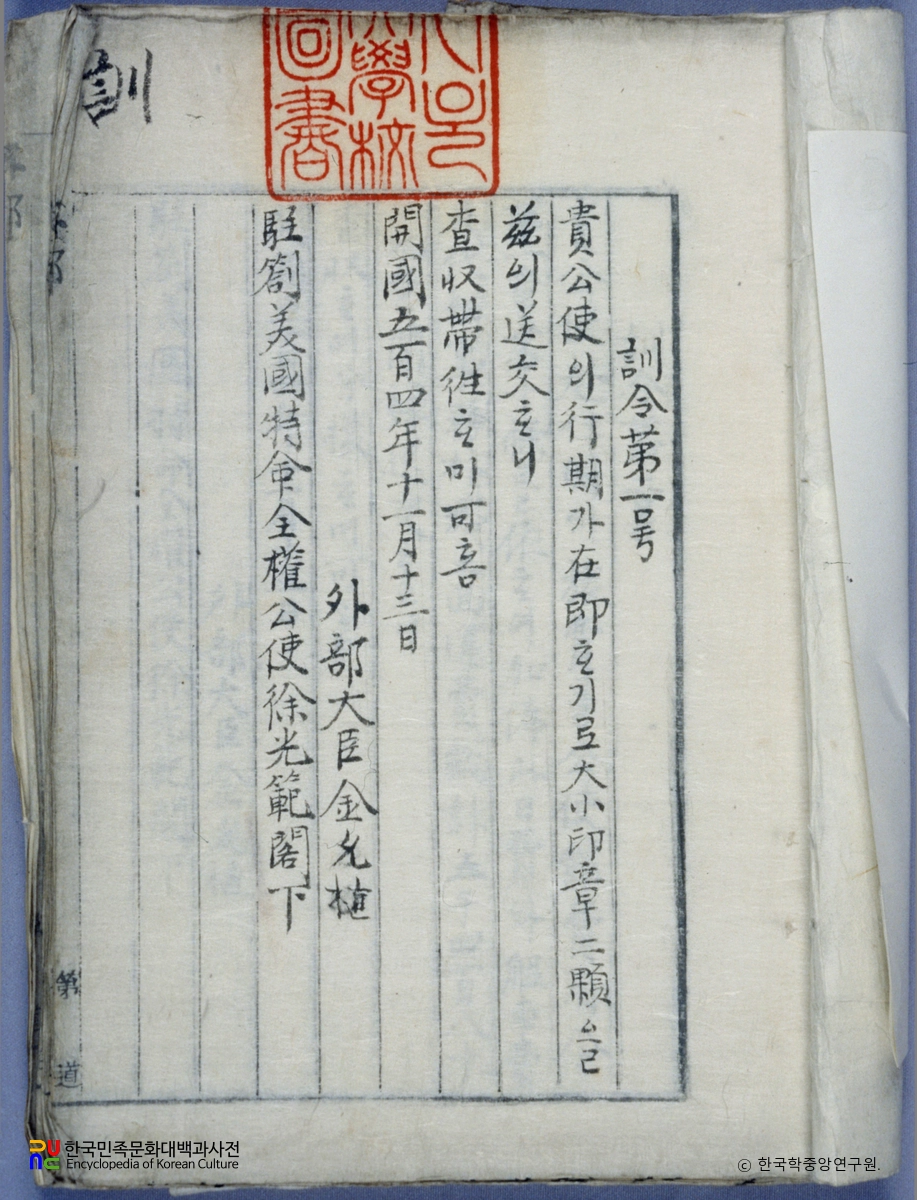 訓
訓令第一号
貴公使의行期가在即ᄒᆞ기로大小印章二顆을
玆의送交ᄒᆞ니
查収帶徃ᄒᆞ미可홈
開國五百四年十一月十三日
外部大臣金允植
駐箚美國特命全權公使徐光範閣下
第
道
한국민족문화대백과사전
Encyclopedia of Korean Culture
ⓒ 한국학중앙연구원.